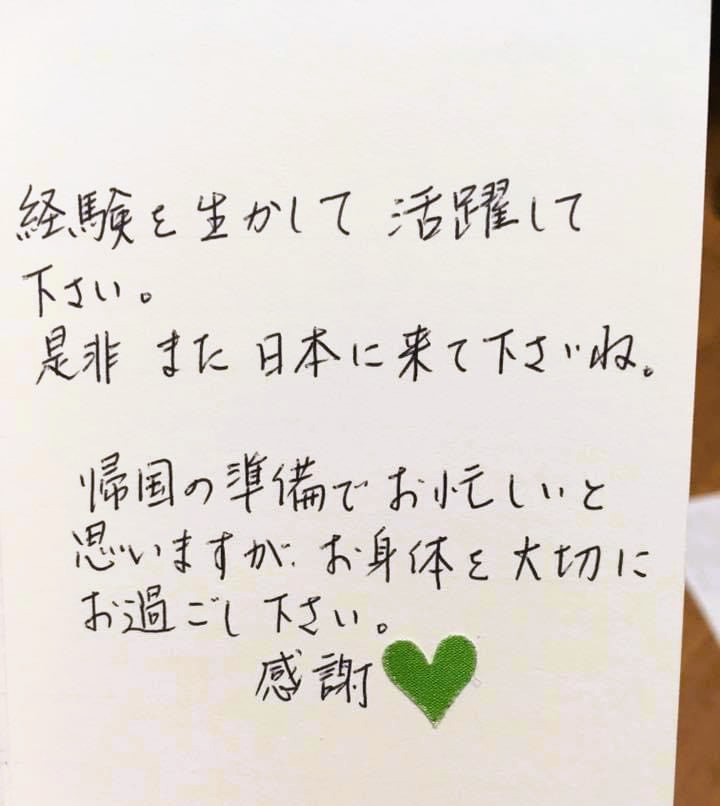 経験を生かして 活躍して
下さい。
是非 また 日本に来て下さいね。
帰国の準備でお忙しいと
思いますが、お身体を大切に
お過ごし下さい。
感謝